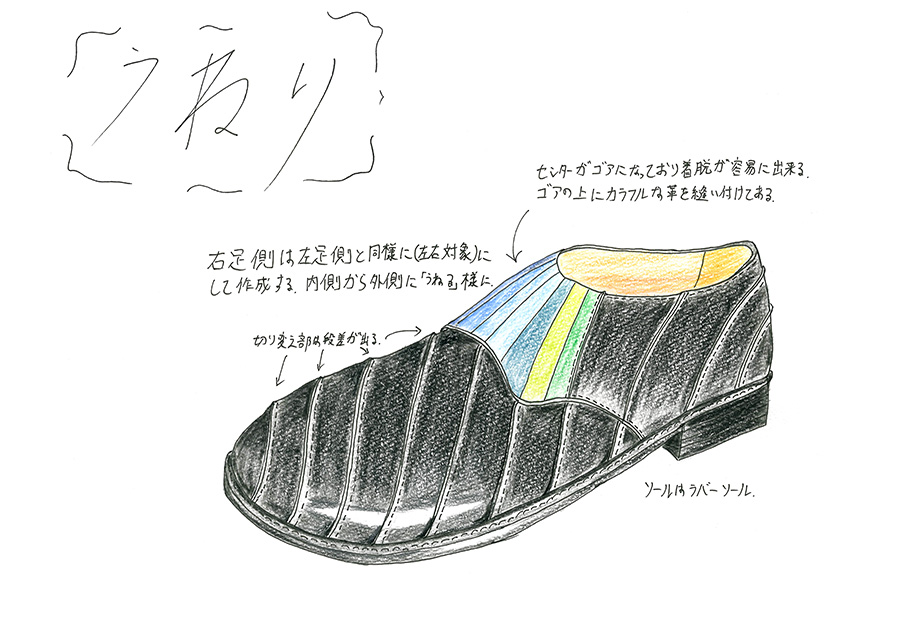 うねり
センターがゴアになっており着脱が容易に出来る.
ゴアの上にカラフルな革を縫い付けてある.
右足側は左足側と同様に(左右対象)に
して作成する. 内側から外側に「うねる」様に.
切り変え部は段差が出る.
ソールはラバーソール.